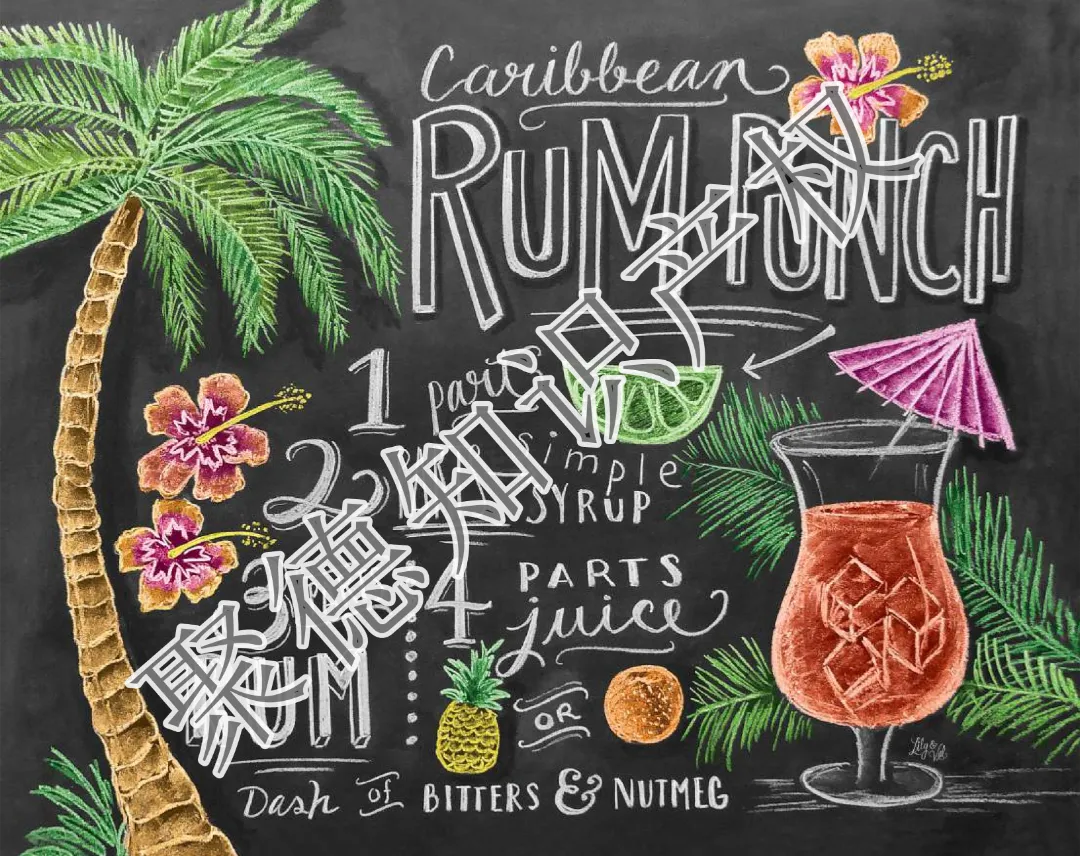 Caribbean
RUM PUNCH
1 part
2
Simple
SYRUP
3
RUM
4 PARTS
juice
OR
Dash of BITTERS & NUTMEG
Lily & Val
聚德知识产权